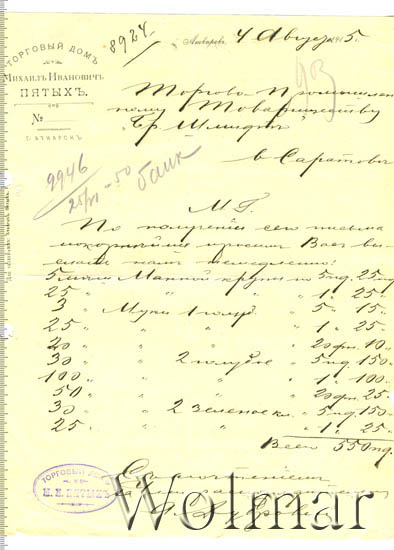 ТОРГОВЫЙ ДОМЪ
МИХАИЛЪ ИВАНОВИЧЪ
ПЯТЫХЪ.
№
Г. АТКАРСКЪ
8924
Аткарскъ, 4 Август 1915.
903
Торгово-Промышленному
Товариществу
Бр. Шмидтъ
в Саратовъ
9946
50
банк
М. Г.
По получении сего письма
покорнейше просим Вас
выслать нам немедленно:
5 мешк. Манной крупы по 5 пд. 25 пд
25 " " " 1 " 25 "
3 " Муки 1 голуб. " 5 " 15 "
25 " " " " 1 " 25 "
20 " " " " 20 фн. 10 "
30 " 2 голубое " 5 пд. 150 "
100 " " " " 1 " 100 "
50 " " " " 20 фн. 25 "
30 " 2 зеленое кл. " 5 пд. 150 "
25 " " " 1 " 25 "
Всего 550 пд.
ТОРГОВЫЙ ДОМЪ
М. И. ПЯТЫХЪ
Wolmar